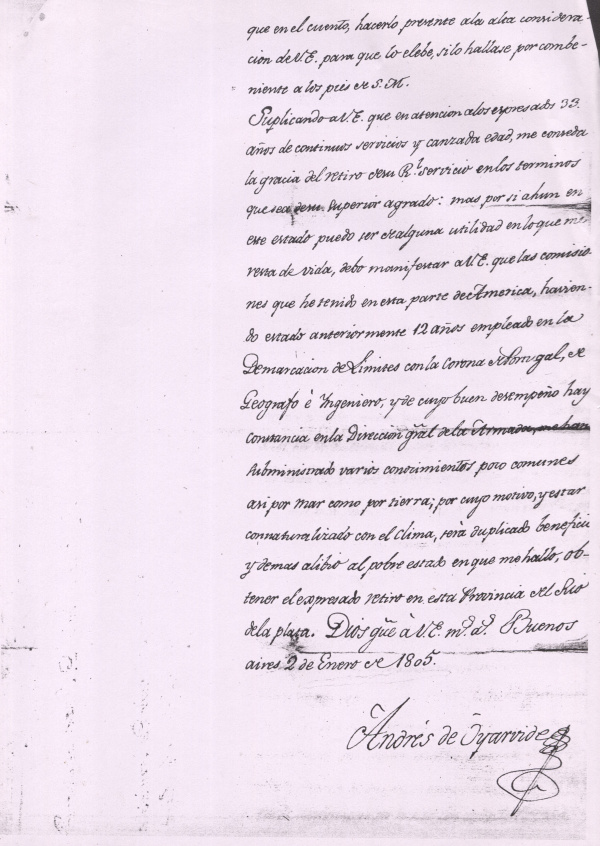 que en el cuento, hacerlo presente a la alta considera-
cion de V.E. para que lo elebe, si lo hallase por combe-
niente a los piés de S.M.
Suplicando a V.E. que en atencion a los expresados 33
años de continuos servicios y canzada edad, me conceda
la gracia del retiro de su Rl. servicio en los terminos
que sea de su superior agrado: mas por si ahun en
este estado puedo ser de alguna utilidad en lo que me
resta de vida, debo manifestar a V.E. que las comisio-
nes que he tenido en esta parte de America, havien-
do estado anteriormente 12 años empleado en la
Demarcacion de Limites con la Corona de Portugal, de
Geografo è Ingeniero, y de cuyo buen desempeño hay
constancia en la Direccion gral de la Armada, me han
subministrado varios conocimientos poco comunes
asi por mar como por tierra; por cuyo motivo, y estar
connaturalizado con el clima, serà duplicado beneficio
y demas alibio al pobre estado en que me hallo, ob-
tener el expresado retiro en esta Provincia del Rio
de la plata. Dios gue. à V.E. ms. as. Buenos
aires 2 de Enero de 1805.
Andrés de Oyarvide